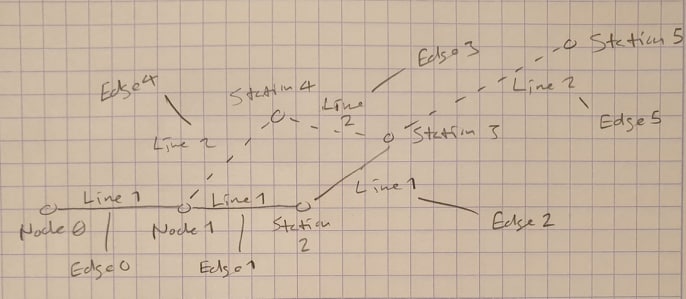 Station 5
Edge 3
Line 2
Edge 4
Station 4
Line
2
Edge 5
Station 3
Line 2
Line 1
Line 1
Line 1
Node 0
Node 1
Station
2
Edge 2
Edge 0
Edge 1